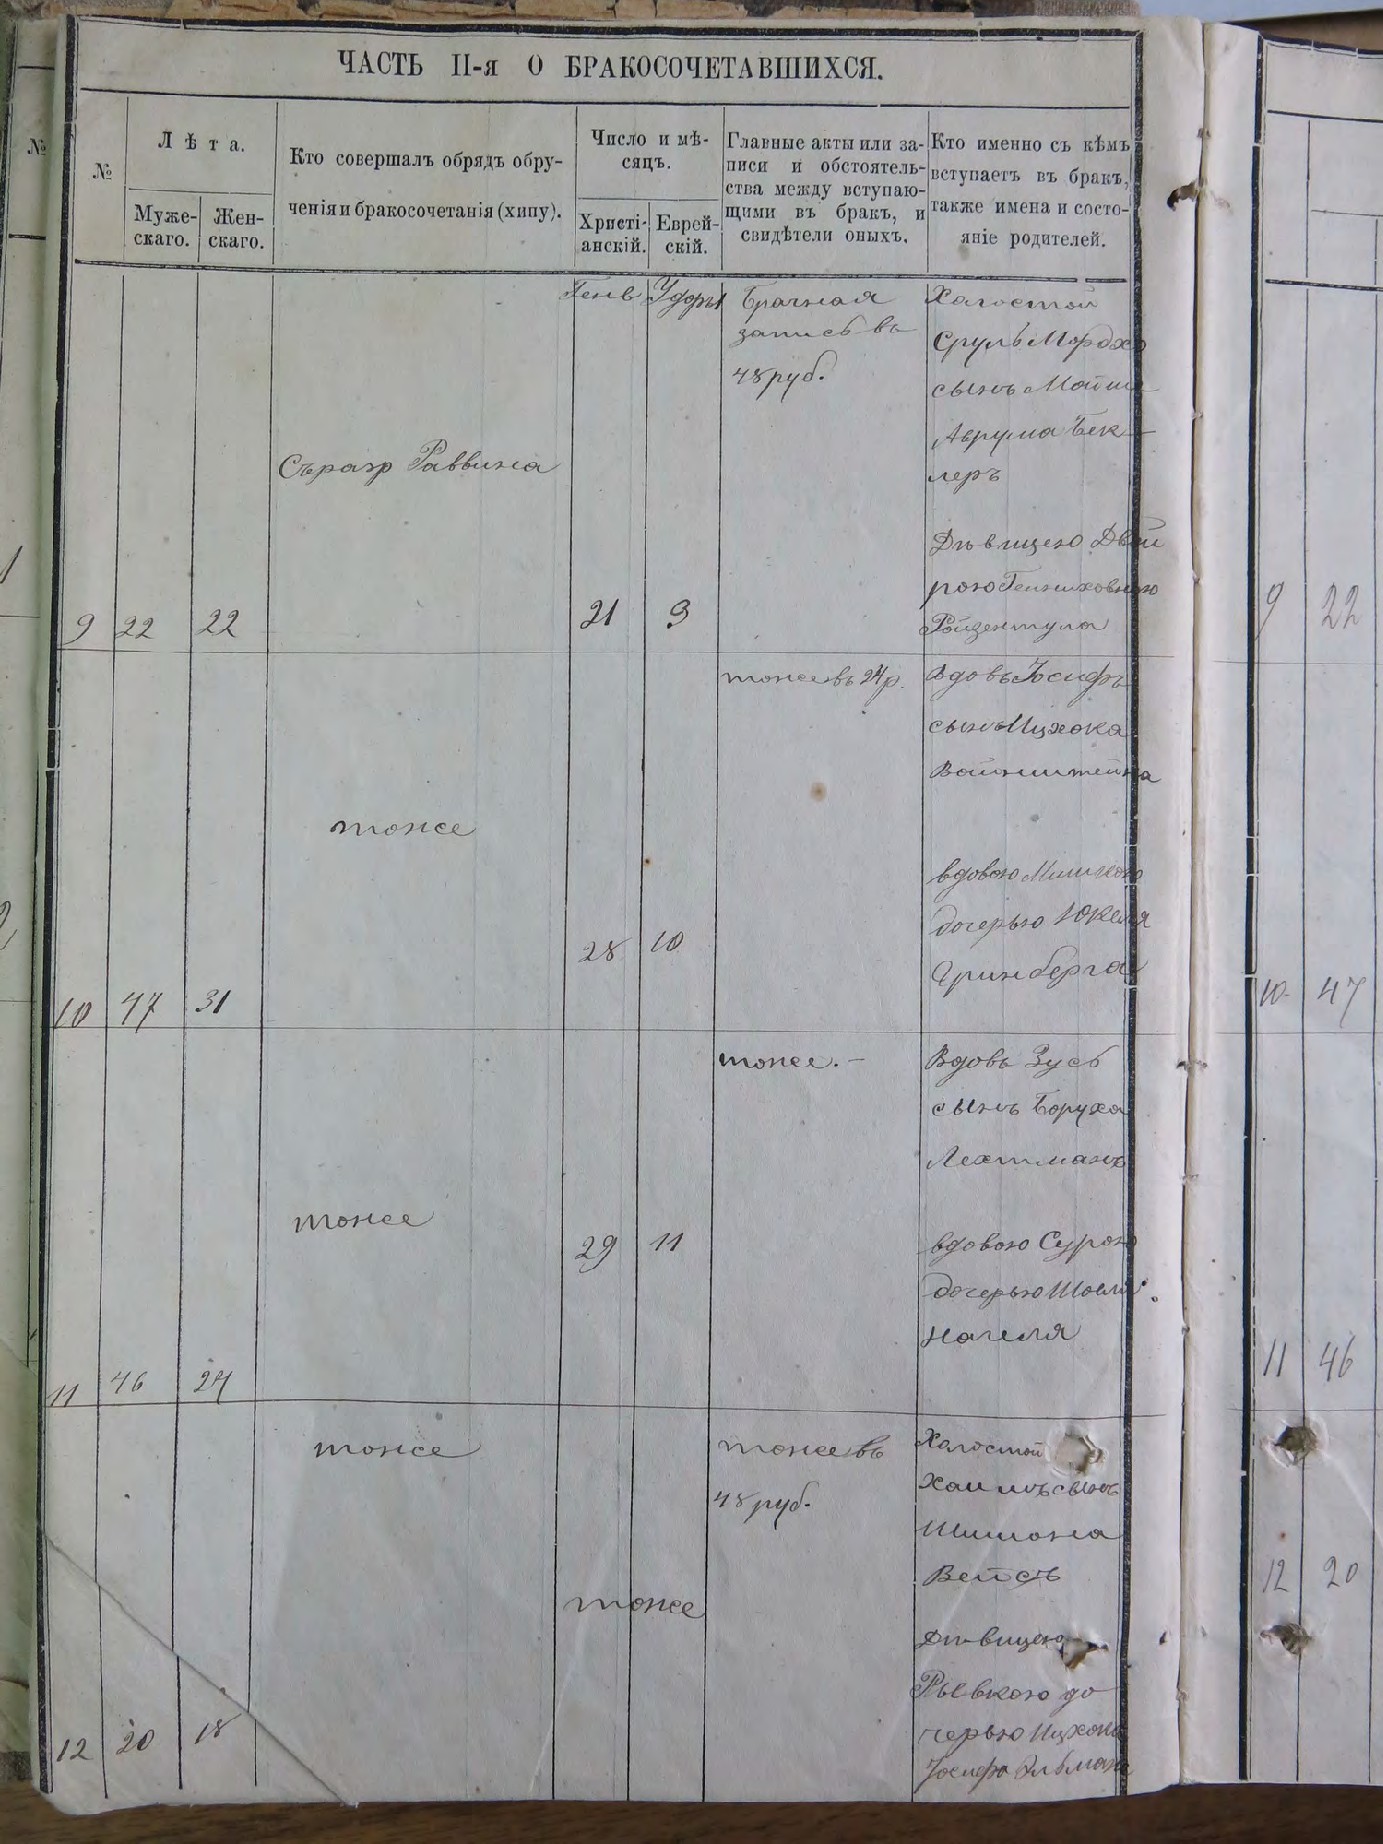 ЧАСТЬ II-я О БРАКОСОЧЕТАВШИХСЯ.
№
№
Лѣта.
Муже-
скаго.
Жен-
скаго.
Кто совершалъ обрядъ обру-
ченія и бракосочетанія (хипу).
Число и мѣ-
сяцъ.
Христі-
анскій.
Еврей-
скій.
Главные акты или за-
писи и обстоятель-
ства между вступаю-
щими въ бракъ, и
свидѣтели оныхъ.
Кто именно съ кѣмъ
вступаетъ въ бракъ,
также имена и состо-
яніе родителей.
9
22
22
Съ разр Раввина
Генв
21
9
Брачная
запись въ
48 руб.
Холостой
Сруль Мордко
сынъ
Аврума Бек-
леръ
Дѣвицею Двой
рою
10
47
31
тоже
28
10
тоже въ 24 р.
Вдовъ Іосифъ
сынъ Ицхока
Вайнштейна
вдовою
дочерью Юкеля
Гринберга
11
46
24
тоже
29
11
тоже. –
Вдовъ Зусь
сынъ Боруха
Лехтманъ
вдовою Сурою
дочерью
Нагеля
12
20
18
тоже
тоже
тоже въ
48 руб.
Холостой
Хаимъ сынъ
Шимона
Вейсъ
Дѣвицею
Рывкою до
черью Ицхока
Іосифа
9
22
10
47
11
46
12
20